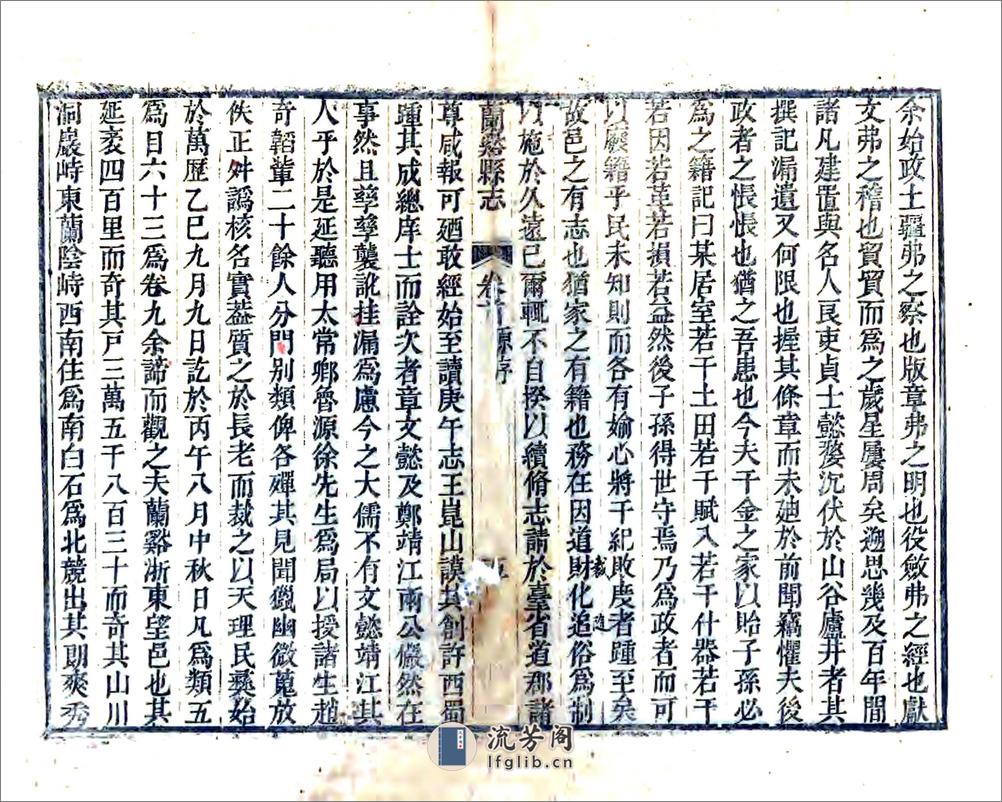 余始政土疆弗之察也版章弗之明也役斂弗之經也獻
文弗之稽也貿貿而爲之歲星屢周矣遡思幾及百年間
諸凡建置與名人良吏貞士懿嫠沉伏於山谷廬井者其
撰記漏遺又何限也握其條章而未廸於前聞竊懼夫後
政者之悵悵也猶之吾患也今夫千金之家以貽子孫必
爲之籍記曰某居室若干土田若干賦入若干什器若干
若因若革若損若益然後子孫得世守焉乃爲政者而可
以廢籍乎民未知則而各有婾心將干紀敗度者踵至矣
故邑之有志也猶家之有籍也務在因道財化追俗爲制
裁 適
以施於久遠已爾輒不自揆以續脩志請於臺省道郡諸
蘭谿縣志 卷首 原序
尊咸報可廼敢經始至讀庚午志王崑山謨其創許西蜀
踵其成總庠士而詮次者章文懿及鄭靖江兩公儼然在
事然且孳孳襲訛挂漏爲慮今之大儒不有文懿靖江其
人乎於是延聽用太常卿魯源徐先生爲局以授諸生趙
奇韜輩二十餘人分門別類俾各殫其見聞儠幽微蒐放
佚正舛譌核名實葢質之於長老而裁之以天理民彝始
於萬歷乙巳九月九日訖於丙午八月中秋日凡爲類五
爲目六十三爲卷九余諦而觀之夫蘭谿浙東望邑也其
延袤四百里而奇其戸三萬五千八百三十而奇其山川
洞巖峙東蘭陰峙西南住爲南白石爲北競出其朗爽秀
流芳阁
lfglib.cn